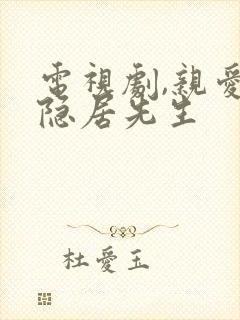 電視劇,親愛
隐居先生
杜愛玉